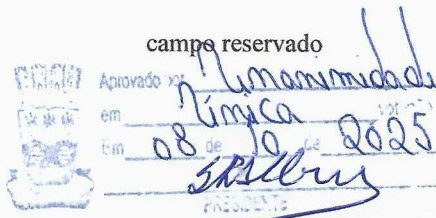 campo reservado
Aprovado por Unanimidade
em Única
Em 08 de 10 de 2025
PRESIDENTE